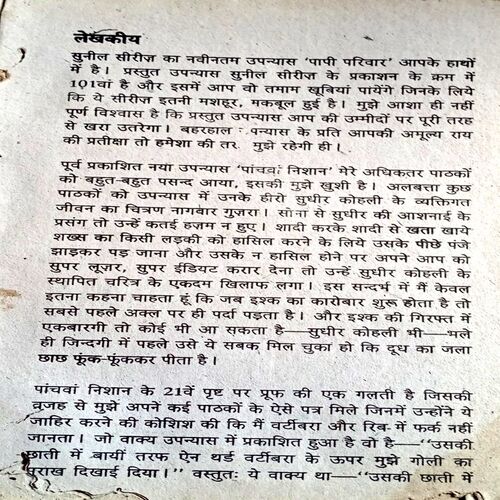 लेखकीय
सुनील सीरीज़ का नवीनतम उपन्यास 'पापी परिवार' आपके हाथों
में है। प्रस्तुत उपन्यास सुनील सीरीज़ के प्रकाशन के क्रम में
101वां है और इसमें आप वो तमाम खूबियां पायेंगे जिनके लिये
कि ये सीरीज़ इतनी मशहूर, मकबूल हुई है। मुझे आशा ही नहीं
पूर्ण विश्वास है कि प्रस्तुत उपन्यास आप की उम्मीदों पर पूरी तरह
से खरा उतरेगा। बहरहाल पन्यास के प्रति आपकी अमूल्य राय
की प्रतीक्षा तो हमेशा की तर मुझे रहेगी ही।
पूर्व प्रकाशित नया उपन्यास 'पांचवां निशान' मेरे अधिकतर पाठकों
को बहुत-बहुत पसन्द आया, इसकी मुझे खुशी है। अलबत्ता कुछ
पाठकों को उपन्यास में उनके हीरो सुधीर कोहली के व्यक्तिगत
जीवन का चित्रण नागवार गुज़रा। सोना से सुधीर की आशनाई के
प्रसंग तो उन्हें कतई हज़म न हुए। शादी करके शादी से खता खाये
शख्स का किसी लड़की को हासिल करने के लिये उसके पीछे पंजे
झाड़कर पड़ जाना और उसके न हासिल होने पर अपने आप को
सुपर लूज़र, सुपर ईडियट करार देना तो उन्हें सुधीर कोहली के
स्थापित चरित्र के एकदम खिलाफ लगा। इस सन्दर्भ में मैं केवल
इतना कहना चाहता हूं कि जब इश्क का कारोबार शुरू होता है तो
सबसे पहले अक्ल पर ही पर्दा पड़ता है। और इश्क की गिरफ्त में
एकबारगी तो कोई भी आ सकता है—सुधीर कोहली भी—भले
ही जिन्दगी में पहले उसे ये सबक मिल चुका हो कि दूध का जला
छाछ फूंक-फूंककर पीता है।
पांचवां निशान के 21वें पृष्ट पर प्रूफ की एक गलती है जिसकी
वजह से मुझे अपने कई पाठकों के ऐसे पत्र मिले जिनमें उन्होंने ये
ज़ाहिर करने की कोशिश की कि मैं वर्टीबरा और रिब में फर्क नहीं
जानता। जो वाक्य उपन्यास में प्रकाशित हुआ है वो है—''उसकी
छाती में बायीं तरफ ऐन थर्ड वर्टीबरा के ऊपर मुझे गोली का
सुराख दिखाई दिया।'' वस्तुतः ये वाक्य था—''उसकी छाती में